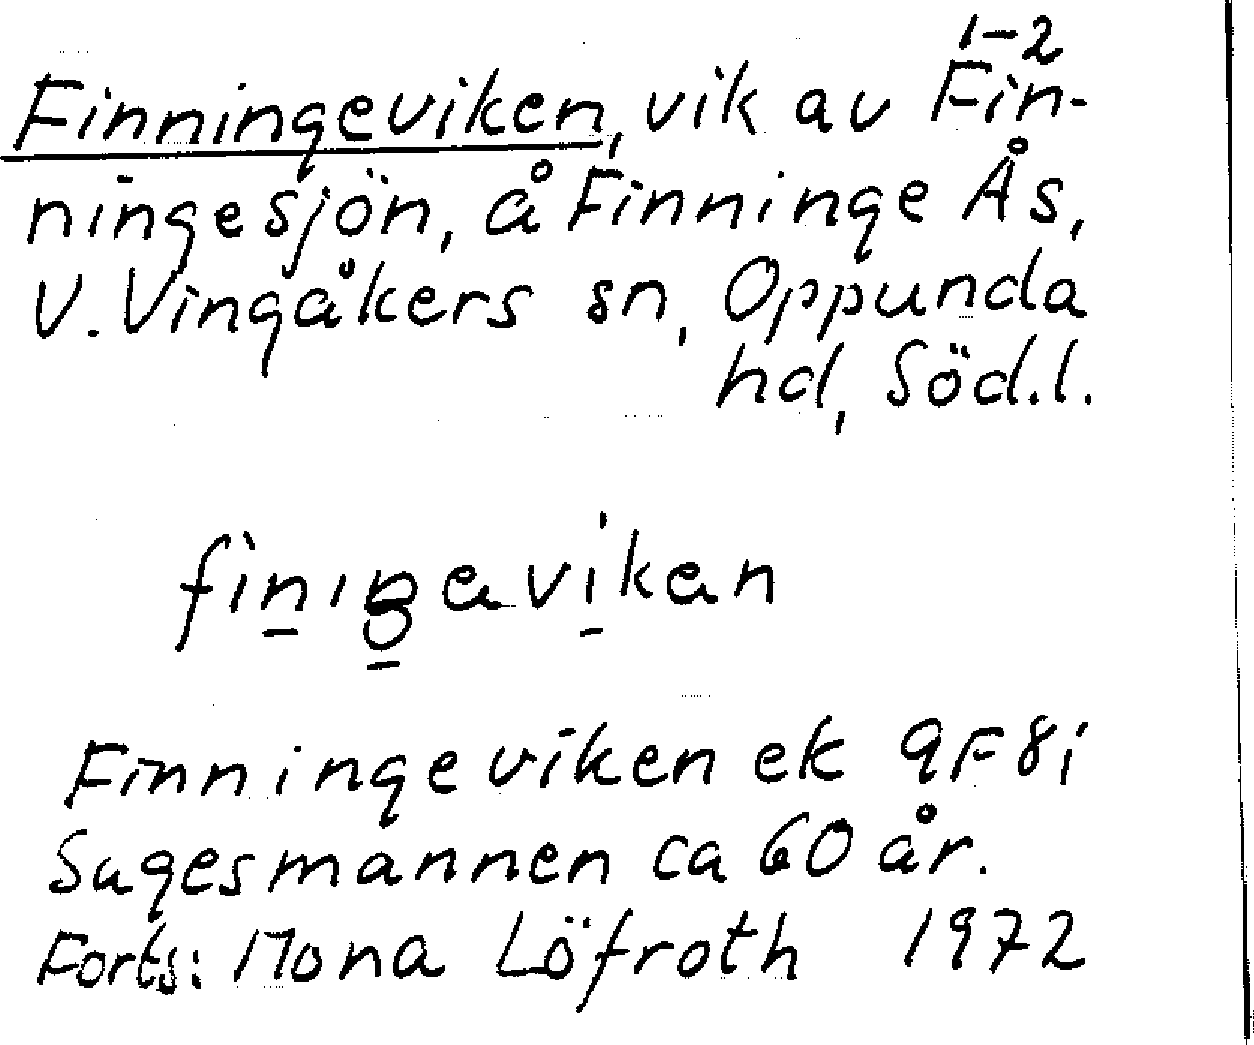 1-2
Finningeviken, vik av Fin-
ningesjön, å Finninge Ås,
V. Vingåkers sn, Oppunda
hd, Söd.l.
Finningeviken ek 9F8i
Sagesmannen ca 60 år.
Forts: Mona Löfroth 1972